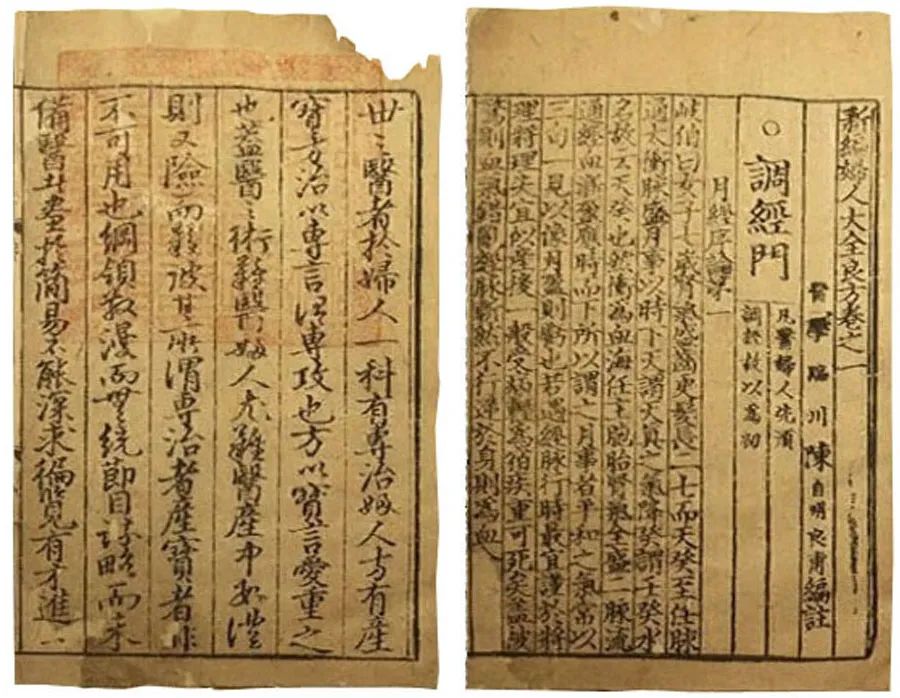 世〻醫者於婦人一科有專治婦人方有產
寶方治以專言何專攻也方以寶言愛重之
也蓋醫〻術難醫婦人尤難醫產中數證
則又險而難彼其所謂專治者產寶者非
不可用也綱領散漫而無統節目諄略而未
備醫者盡於簡易不能深求徧覽有才進一
新編婦人大全良方卷之一
醫學臨川陳自明良甫編註
○調經門
凡醫婦人先須
調經故以為初
月經序論第一
岐伯曰女子七歲腎氣盛齒更髮長二七而天癸至任脉
通太衝脉盛月事以時下天謂天真之氣降癸謂壬癸水
名故云天癸也然衝為血海任主胞胎腎氣全盛二脉流
通經血漸盈應時而下所以謂之月事者平和之氣常以
三旬一見以像月盈則虧也若遇經脉行時最宜謹於將
理將理失宜似產後一般受病輕為宿疾重可死矣盖被
驚則血氣錯亂經脉漸然不行逆於身則為血